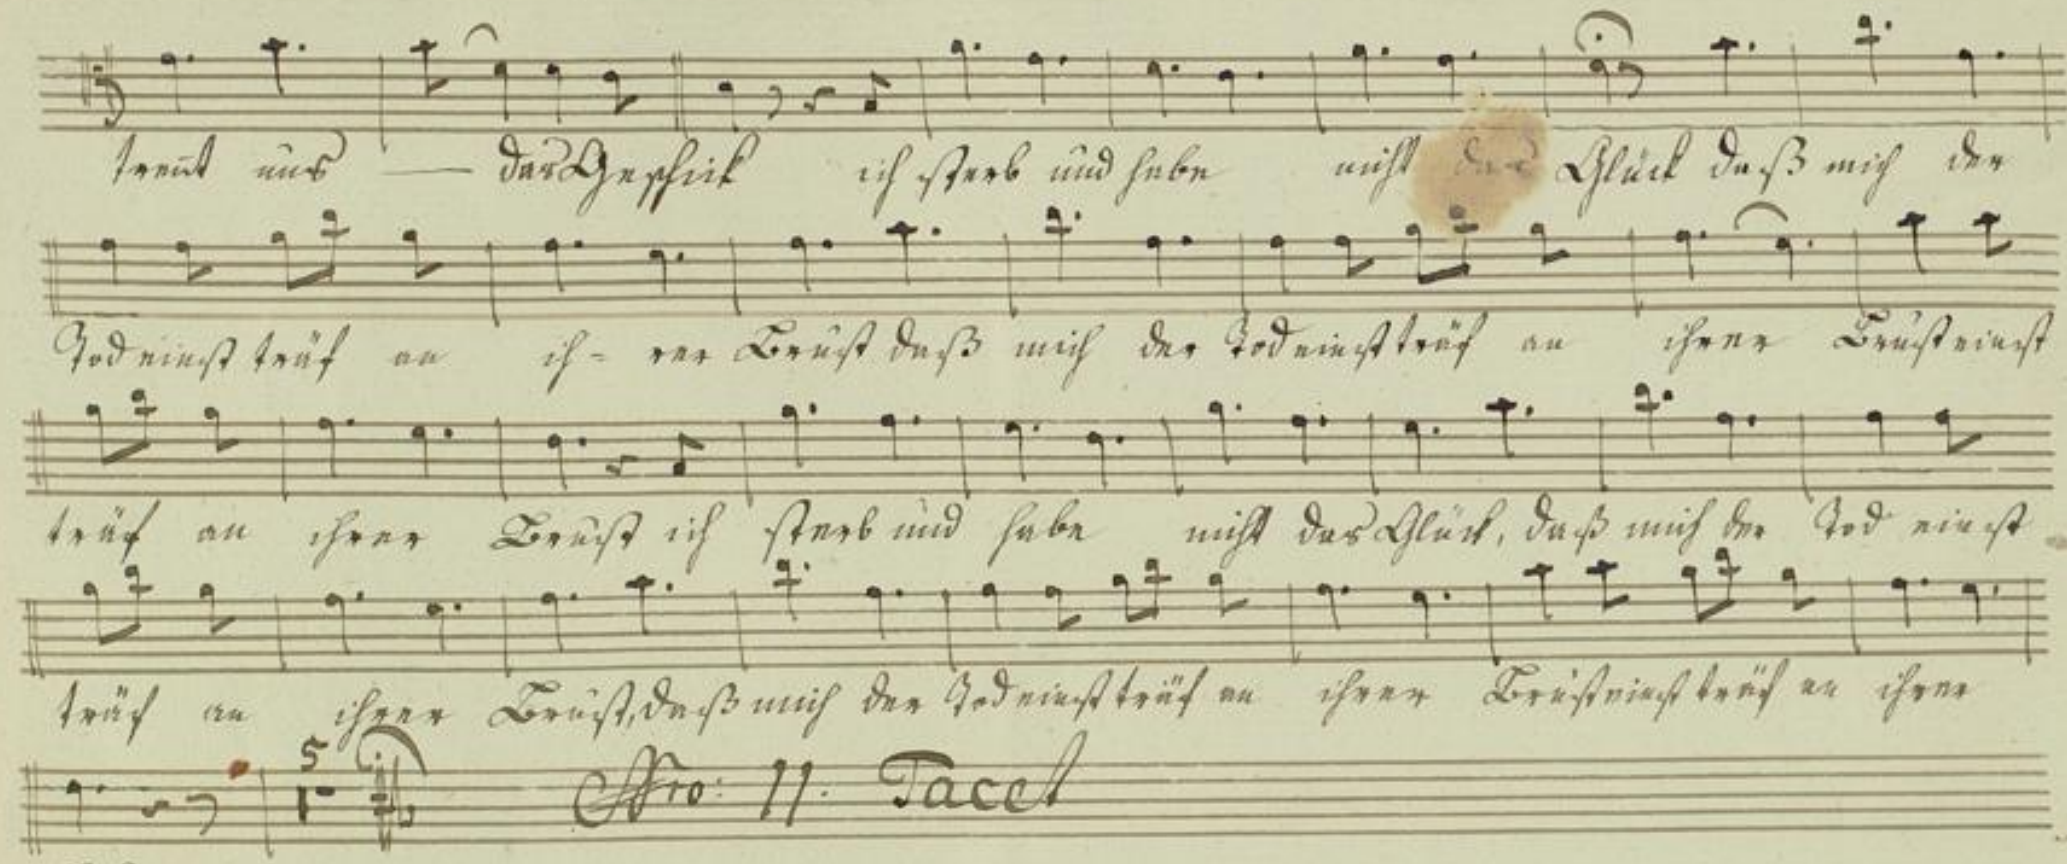 trent uns — das Geschick ich sterb und habe nicht das Glück daß mich der
Tod einst träf an ih- rer Brust daß mich der Tod einst träf an ihrer Brust einst
träf an ihrer Brust ich sterb und habe nicht das Glück, daß mich der Tod einst
träf an ihrer Brust, daß mich der Tod einst träf an ihrer Brust einst träf an ihrer
5 Nro: 11. Tacet